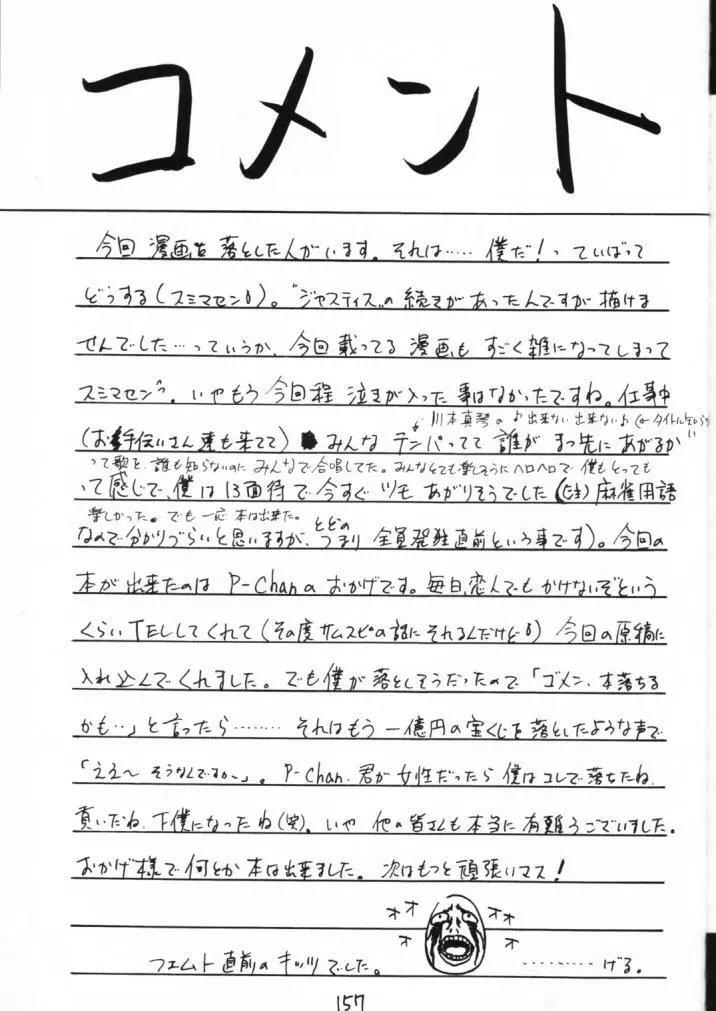 コメント
今回 漫画を 落とした人がいます。それは…… 僕だ!っていばって
どうする(スミマセン)。"ジャスティス"の続きがあったんですが描けま
せんでした…っていうか、今回載ってる 漫画も すごく雑になってしまって
スミマセン。いやもう 今回程 泣きが入った 事はなかったですね。仕事中
川本真琴の♪出来ない 出来ない♪
(お手伝いさん達も来てて) みんな テンパってて 誰が まっ先にあがるか
って歌を、誰も知らないのに みんなで合唱してた。みんなとても楽しそうにヘロヘロで 僕もとっても
って感じで、僕は 13面待で 今すぐ ツモ あがりそうでした(注)麻雀用語
楽しかった。でも一応 本は出来た。
なので分かりづらいと思いますが、つまり 全員発狂直前という事です)。今回の
とどの
本が出来たのは P-Chanの おかげです。毎日、恋人でも かけないぞという
くらい TELしてくれて(その度 サムスピの話に それるんだけど) 今回の原稿に
入れ込んでくれました。でも僕が 落としそうだったので「ゴメン、本落ちる
かも‥」と言ったら……… それはもう 一億円の宝くじを落としたような声で
「ええ〜 そうなんですか〜」。P-Chan、君が女性だったら 僕はコレで落ちたね、
貢いだね、下僕になったね(笑)。いや 他の皆さんも本当に 有難うございました。
おかげ様で何とか 本は出来ました。次はもっと頑張いマス!
オオ オオ
オ オ
フェムト直前の キッツでした。 ………げる。
157